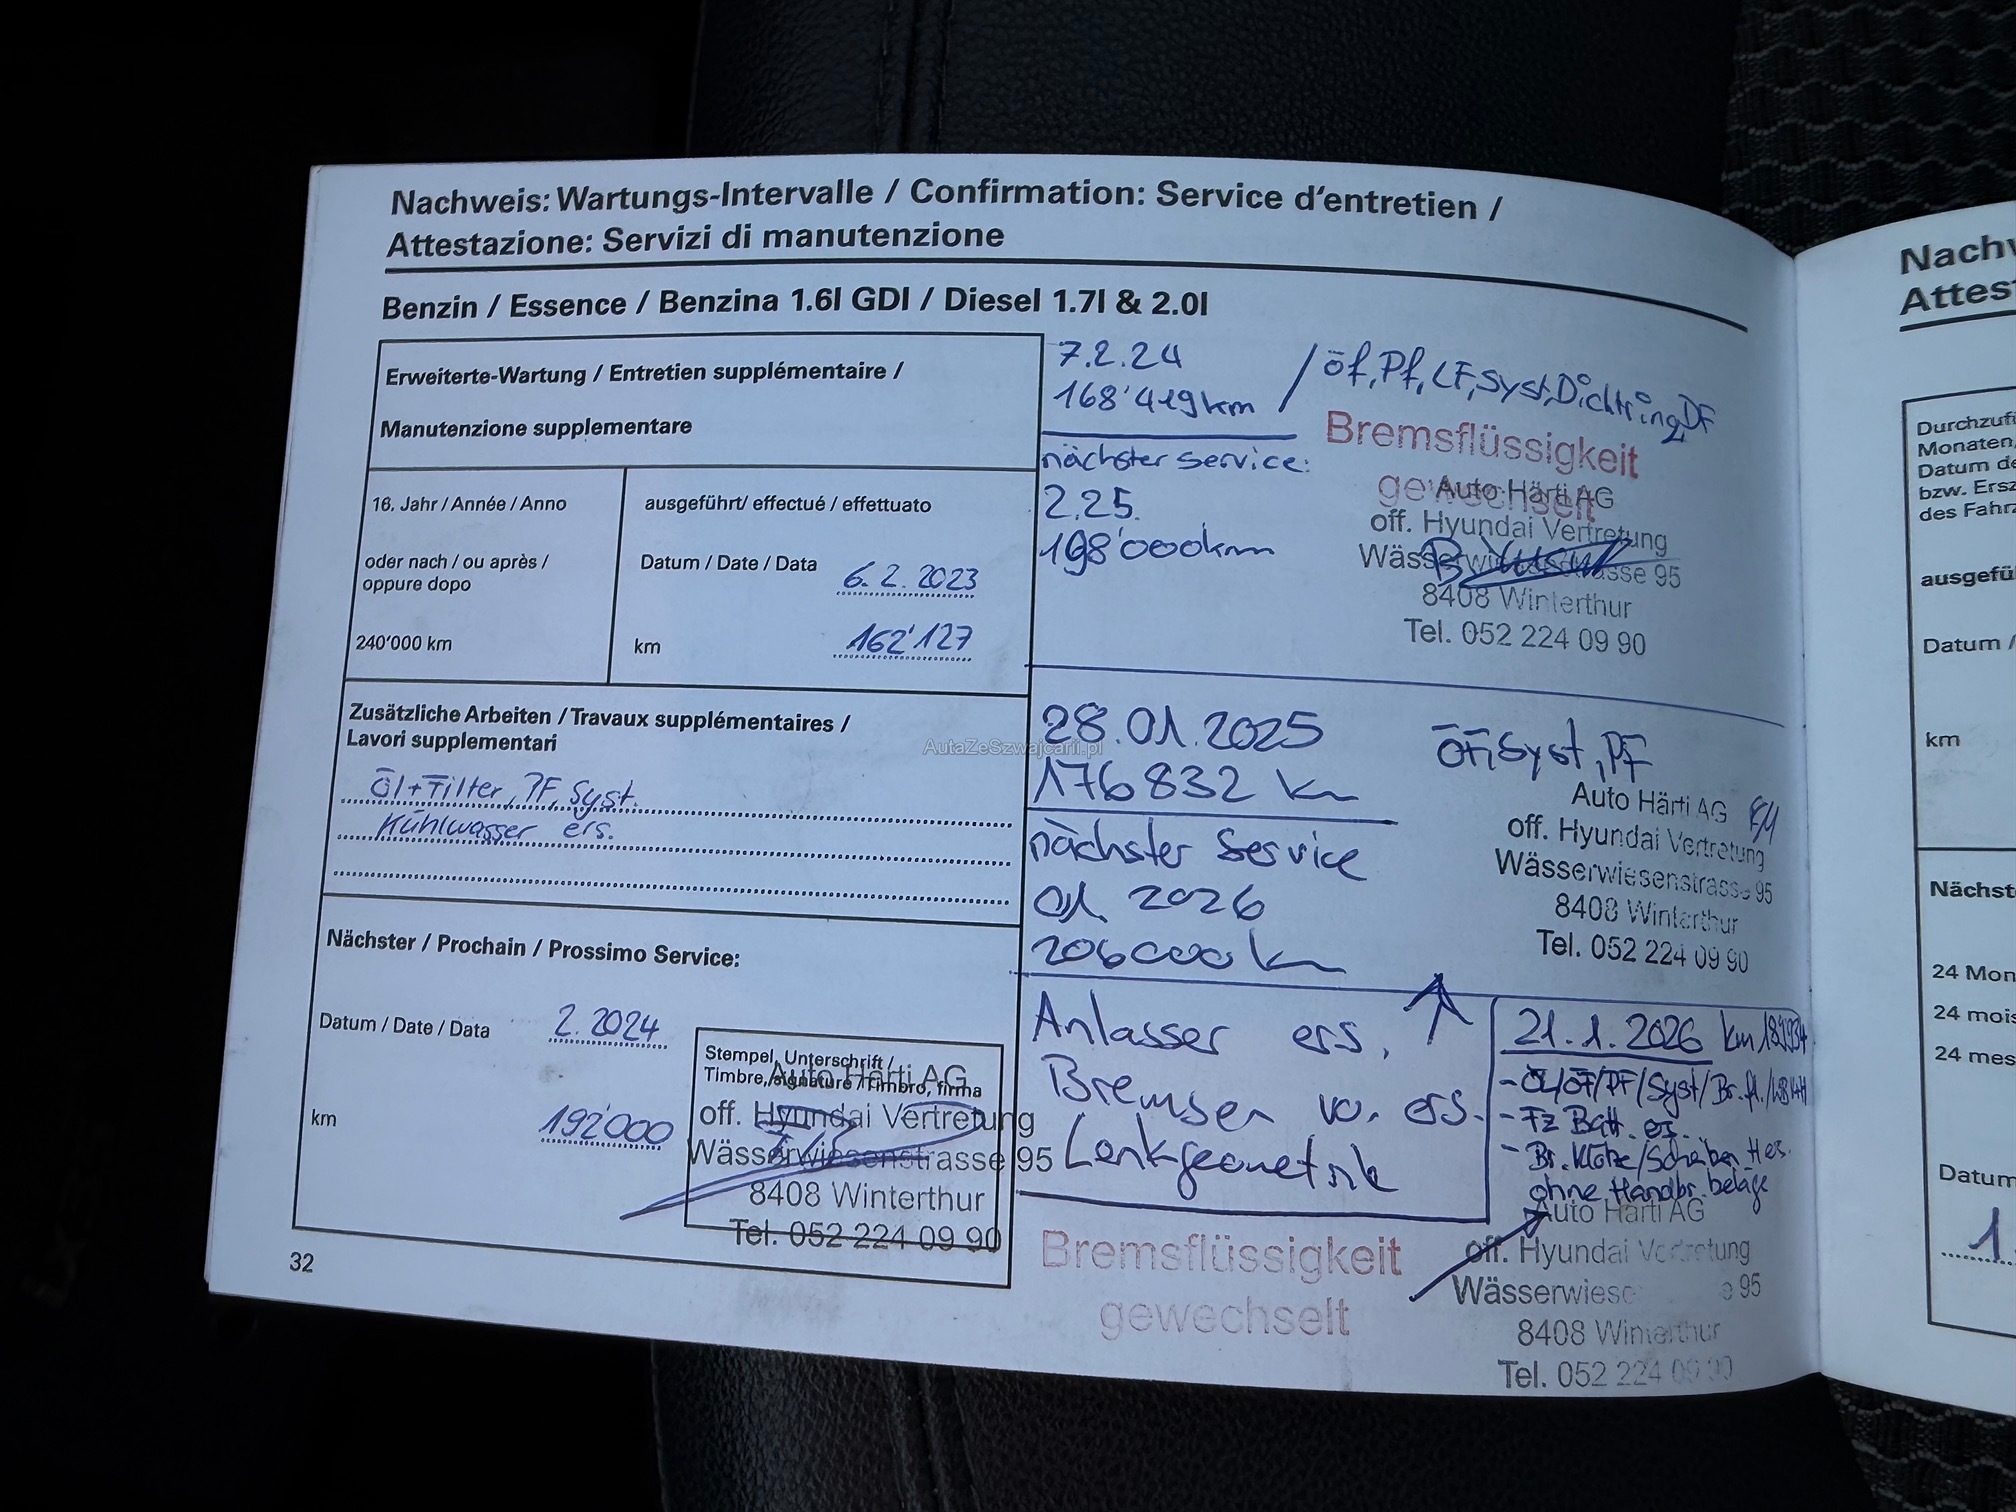 Nachweis: Wartungs-Intervalle / Confirmation: Service d'entretien /
Attestazione: Servizi di manutenzione
Benzin / Essence / Benzina 1.6l GDI / Diesel 1.7l & 2.0l
Erweiterte-Wartung / Entretien supplémentaire /
Manutenzione supplementare
16. Jahr / Année / Anno
oder nach / ou après /
oppure dopo
240'000 km
ausgeführt/ effectué / effettuato
Datum / Date / Data 6.2.2023
km 162'127
Zusätzliche Arbeiten / Travaux supplémentaires /
Lavori supplementari
Öl+Filter, PF, Syst.
Kühlwasser ers.
Nächster / Prochain / Prossimo Service:
Datum / Date / Data 2.2024
km 192'000
Stempel, Unterschrift /
Timbre, signature / Timbro, firma
Auto Härti AG
off. Hyundai Vertretung
Wässerwiesenstrasse 95
8408 Winterthur
Tel. 052 224 09 90
32
7.2.24
168'419km / öf, Pf, LF, Syst, Dichtring, DF
nächster service:
2.25.
198'000km
Bremsflüssigkeit
gewechselt
Auto Härti AG
off. Hyundai Vertretung
Wässerwiesenstrasse 95
8408 Winterthur
Tel. 052 224 09 90
28.01.2025
176832 km
nächster Service
01. 2026
206000 km
ÖF, Syst, PF
Auto Härti AG
off. Hyundai Vertretung
Wässerwiesenstrasse 95
8408 Winterthur
Tel. 052 224 09 90
Anlasser ers.
Bremsen vo. ers.
Lenkgeometrie
Bremsflüssigkeit
gewechselt
21.1.2026 km
- ÖL/ÖF/PF/Syst/Br.fl./
- Fz Batt. es.
- Br.Klötze/Scheiben H es.
ohne Handbr.beläge
Auto Härti AG
off. Hyundai Vertretung
8408 Winterthur
Tel. 052 224 09 90
AutaZeSzwajcarii.pl
Nachw
Attest
Durchzuf
Monaten,
Datum de
bzw. Ers
des Fahrz
ausgefü
Datum /
km
Nächst
24 Mon
24 mois
24 mes
Datum
1.